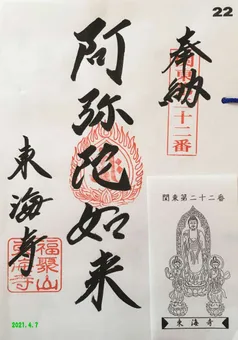 22
奉納
十二番
阿弥陀如来
東海寺
福聚山
東海寺
関東第二十二番
東海寺
2021.4.7